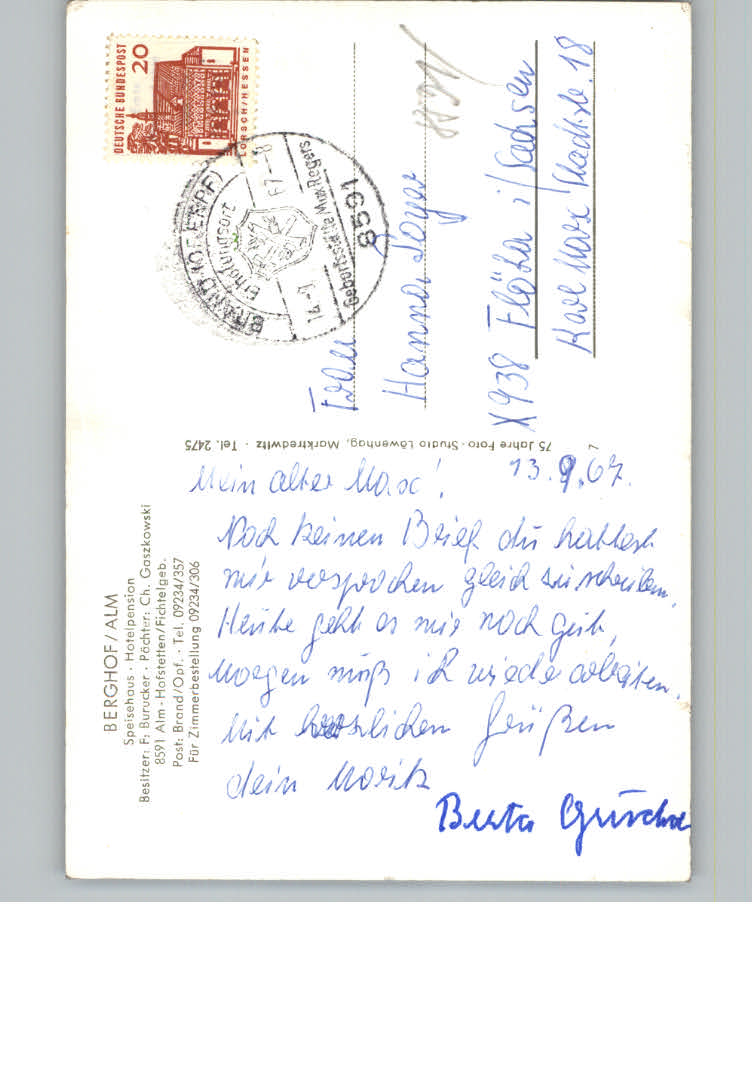 BERGHOF / ALM
Speisehaus · Hotelpension
Besitzer: F. Burucker · Pächter: Ch. Gaszkowski
8591 Alm - Hofstetten/Fichtelgeb.
Post: Brand/Opf. · Tel. 09234/357
Für Zimmerbestellung 09234/306
13.9.67.
Mein alter Max!
Noch keinen Brief du hattest
mir versprochen gleich zu schreiben.
Heute geht es mir noch gut,
Morgen muß ich wieder arbeiten.
Mit herzlichen Grüßen
dein Moritz
Berta
75 Jahre Foto-Studio Löwenhag, Marktredwitz · Tel. 2475
7
DEUTSCHE BUNDESPOST
20
LORSCH/HESSEN
BRAND (OBERPF)
Erholungsort
14.-9. 67-8
Geburtsstätte Max Regers
8591
Frau
Hanna
X938 Flöha i/Sachsen
Karl Marx Stadtstr. 18